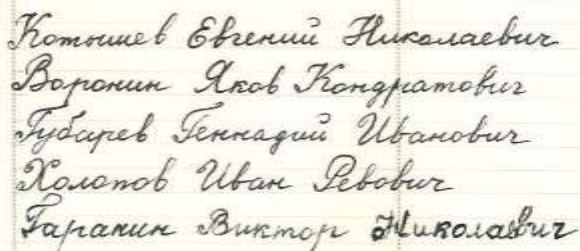 Котышев Евгений Николаевич
Воронин Яков Кондратович
Губарев Геннадий Иванович
Холопов Иван Ревович
Гаранин Виктор Николаевич